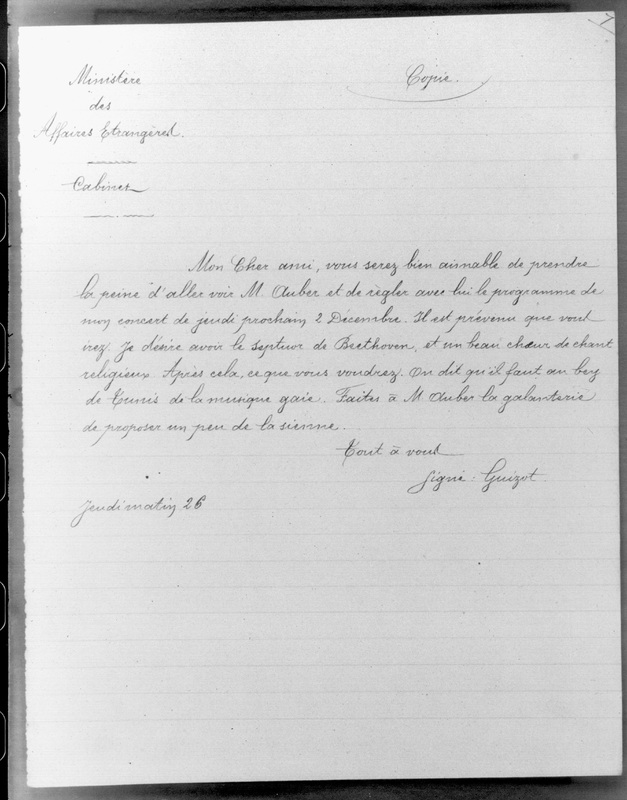 Ministère
Copie.
des
Affaires Etrangères.
Cabinet
Mon Cher ami, vous serez bien aimable de prendre
la peine d'aller voir M Auber et de règler avec lui le programme de
mon concert de jeudi prochain 2 Décembre. Il est prévenu que vous
irez. Je désire avoir le septuor de Beethoven, et un beau chœur de chant
religieux. Après cela, ce que vous voudrez. On dit qu'il faut au bey
de Tunis de la musique gaie. Faites à M Auber la galanterie
de proposer un peu de la sienne.
Tout à vous
Signé : Guizot
Jeudi matin 26